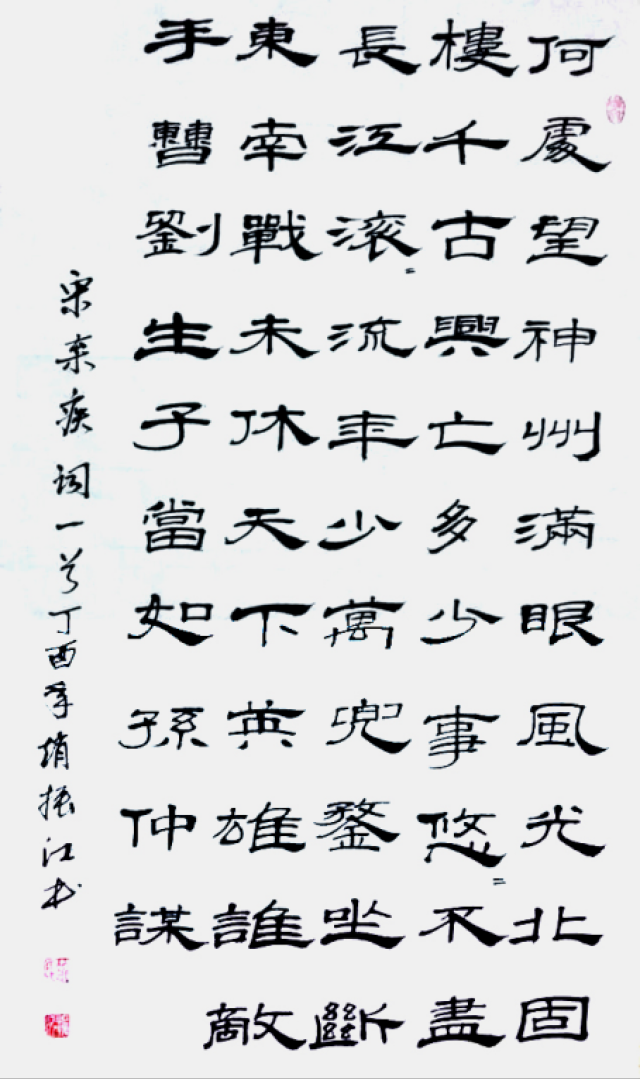 何處望神州滿眼風光北固
樓千古興亡多少事悠〻不盡
長江滚〻流年少萬兜鍪坐斷
東南戰未休天下英雄誰敵
手曹劉生子當如孫仲謀
宋弃疾词一首丁酉年振江书